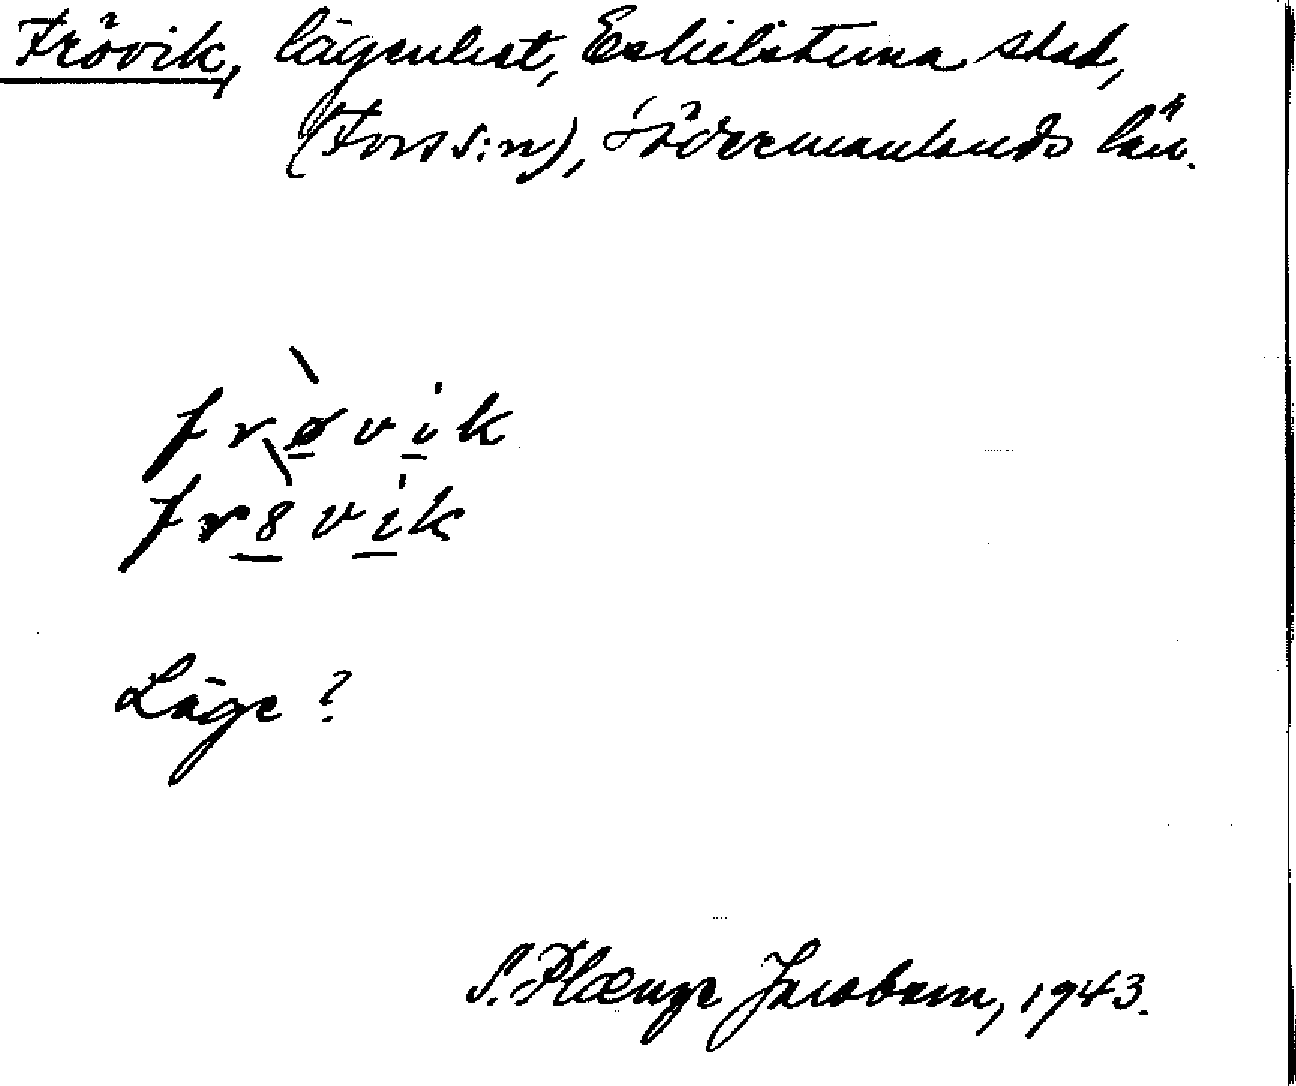 Frövik, lägenhet, Eskilstuna stad,
(Fors s:n), Södermanlands län.
frø̀vik
fr8̀vik
Läge?
S. Plænge Jacobson, 1943.